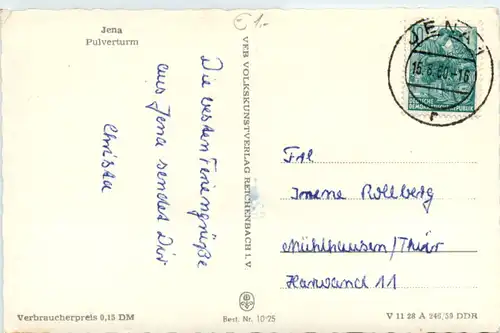 Jena
Pulverturm
£ 1.-
Die besten Feriengrüße
aus Jena sendet Dir
Christa
VEB VOLKSKUNSTVERLAG REICHENBACH I. V.
JENA 1
15.8.60.-16
r
DEUTSCHE
DEMOKRATISCHE REPUBLIK
Frl
Irene Rollberg
Mühlhausen/Thür
Harwand 11
Verbraucherpreis 0,15 DM
Best. Nr. 10/25
V 11 28 A 246/59 DDR